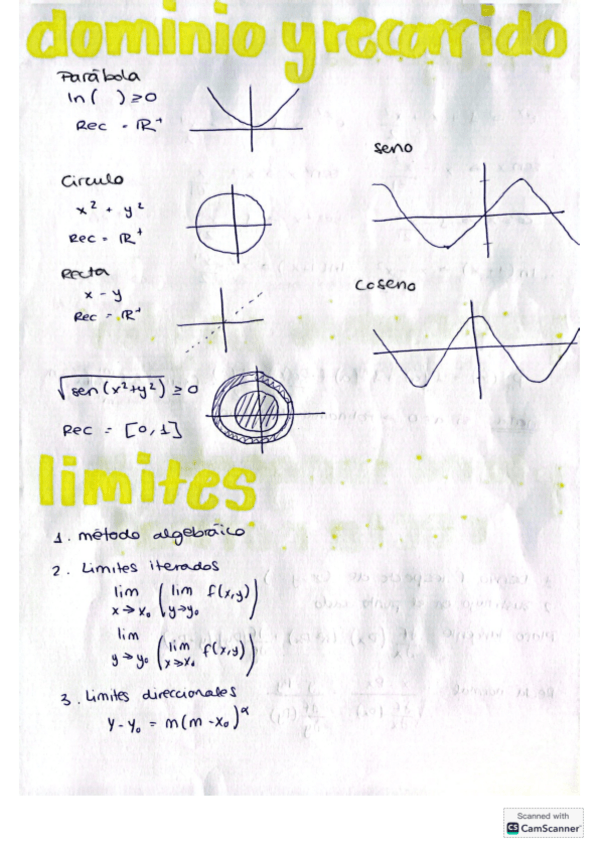 dominio y recorrido
Parábola
ln( ) ≥ 0
Rec = ℝ⁺
seno
Circulo
x² + y²
Rec = ℝ⁺
Recta
x - y
Rec = ℝ⁺
Coseno
√sen(x²+y²) ≥ 0
Rec = [0,1]
limites
1. método algebráico
2. Limites iterados
lim x→x₀ (lim y→y₀ f(x,y))
lim y→y₀ (lim x→x₀ f(x,y))
3. Limites direccionales
y-y₀ = m(m-x₀)^α
Scanned with
CS CamScanner